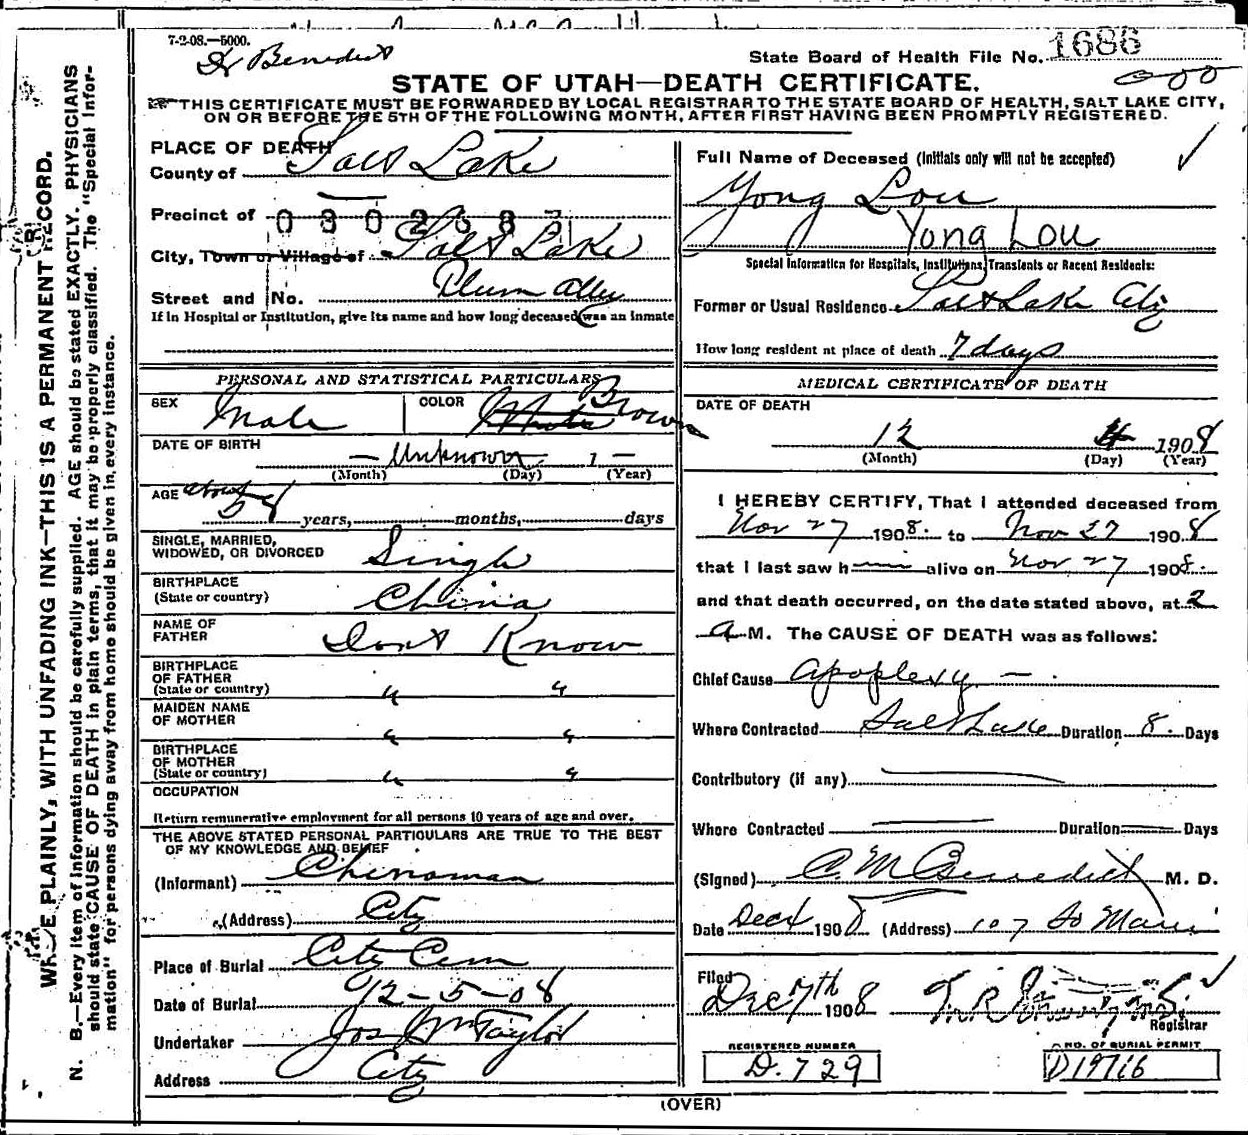 7-2-08.—5000.
Dr Benedict
State Board of Health File No. 1686
STATE OF UTAH—DEATH CERTIFICATE.
THIS CERTIFICATE MUST BE FORWARDED BY LOCAL REGISTRAR TO THE STATE BOARD OF HEALTH, SALT LAKE CITY,
ON OR BEFORE THE 5TH OF THE FOLLOWING MONTH, AFTER FIRST HAVING BEEN PROMPTLY REGISTERED.
PLACE OF DEATH
County of Salt Lake
Precinct of
City, Town or Village of Salt Lake
Street and No. Plum Alley
If in Hospital or Institution, give its name and how long deceased was an inmate
PERSONAL AND STATISTICAL PARTICULARS
SEX Male COLOR White Brown
DATE OF BIRTH — Unknown 1 —
(Month) (Day) (Year)
AGE about 58 years, months, days
SINGLE, MARRIED, WIDOWED, OR DIVORCED Single
BIRTHPLACE (State or country) China
NAME OF FATHER Dont Know
BIRTHPLACE OF FATHER (State or country) " "
MAIDEN NAME OF MOTHER " "
BIRTHPLACE OF MOTHER (State or country) " "
OCCUPATION
Return remunerative employment for all persons 10 years of age and over.
THE ABOVE STATED PERSONAL PARTICULARS ARE TRUE TO THE BEST
OF MY KNOWLEDGE AND BELIEF
(Informant) Chinaman
(Address) City
Place of Burial City Cem
Date of Burial 12-5-08
Undertaker Jos Wm Taylor
Address City
Full Name of Deceased (Initials only will not be accepted)
Yong Lou
Yong Lou
Special Information for Hospitals, Institutions, Transients or Recent Residents:
Former or Usual Residence Salt Lake City
How long resident at place of death 7 days
MEDICAL CERTIFICATE OF DEATH
DATE OF DEATH
12 4 1908
(Month) (Day) (Year)
I HEREBY CERTIFY, That I attended deceased from
Nov 27 1908. to Nov 27 1908
that I last saw h alive on Nov 27 1908.
and that death occurred, on the date stated above, at 2
a M. The CAUSE OF DEATH was as follows:
Chief Cause Apoplexy —
Where Contracted Salt Lake Duration 8. Days
Contributory (if any)
Where Contracted Duration Days
(Signed) C. M. Benedict M. D.
Date Dec 4 1908 (Address) 107 So Main
Filed
Dec 7th 1908
Registrar
REGISTERED NUMBER
D. 729
NO. OF BURIAL PERMIT
D19716
(OVER)
WRITE PLAINLY, WITH UNFADING INK—THIS IS A PERMANENT RECORD.
N. B.—Every item of information should be carefully supplied. AGE should be stated EXACTLY. PHYSICIANS
should state CAUSE OF DEATH in plain terms, that it may be properly classified. The "Special Infor-
mation" for persons dying away from home should be given in every instance.